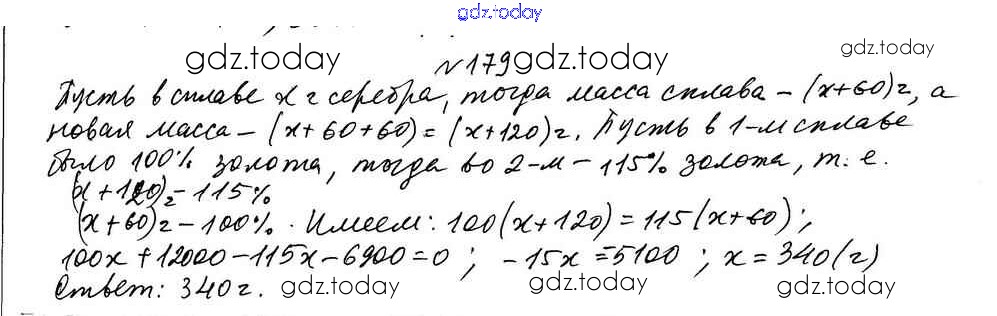 gdz.today
gdz.today №179 gdz.today gdz.today
Пусть в сплаве x г серебра, тогда масса сплава – (x+60)г, а
новая масса – (x+60+60) = (x+120)г. Пусть в 1-м сплаве
было 100% золота, тогда во 2-м – 115% золота, т. е.
(x+120)г – 115%
(x+60)г – 100%. Имеем: 100(x+120) = 115(x+60);
100x+12000-115x-6900=0; -15x=5100; x=340(г)
Ответ: 340г. gdz.today gdz.today gdz.today